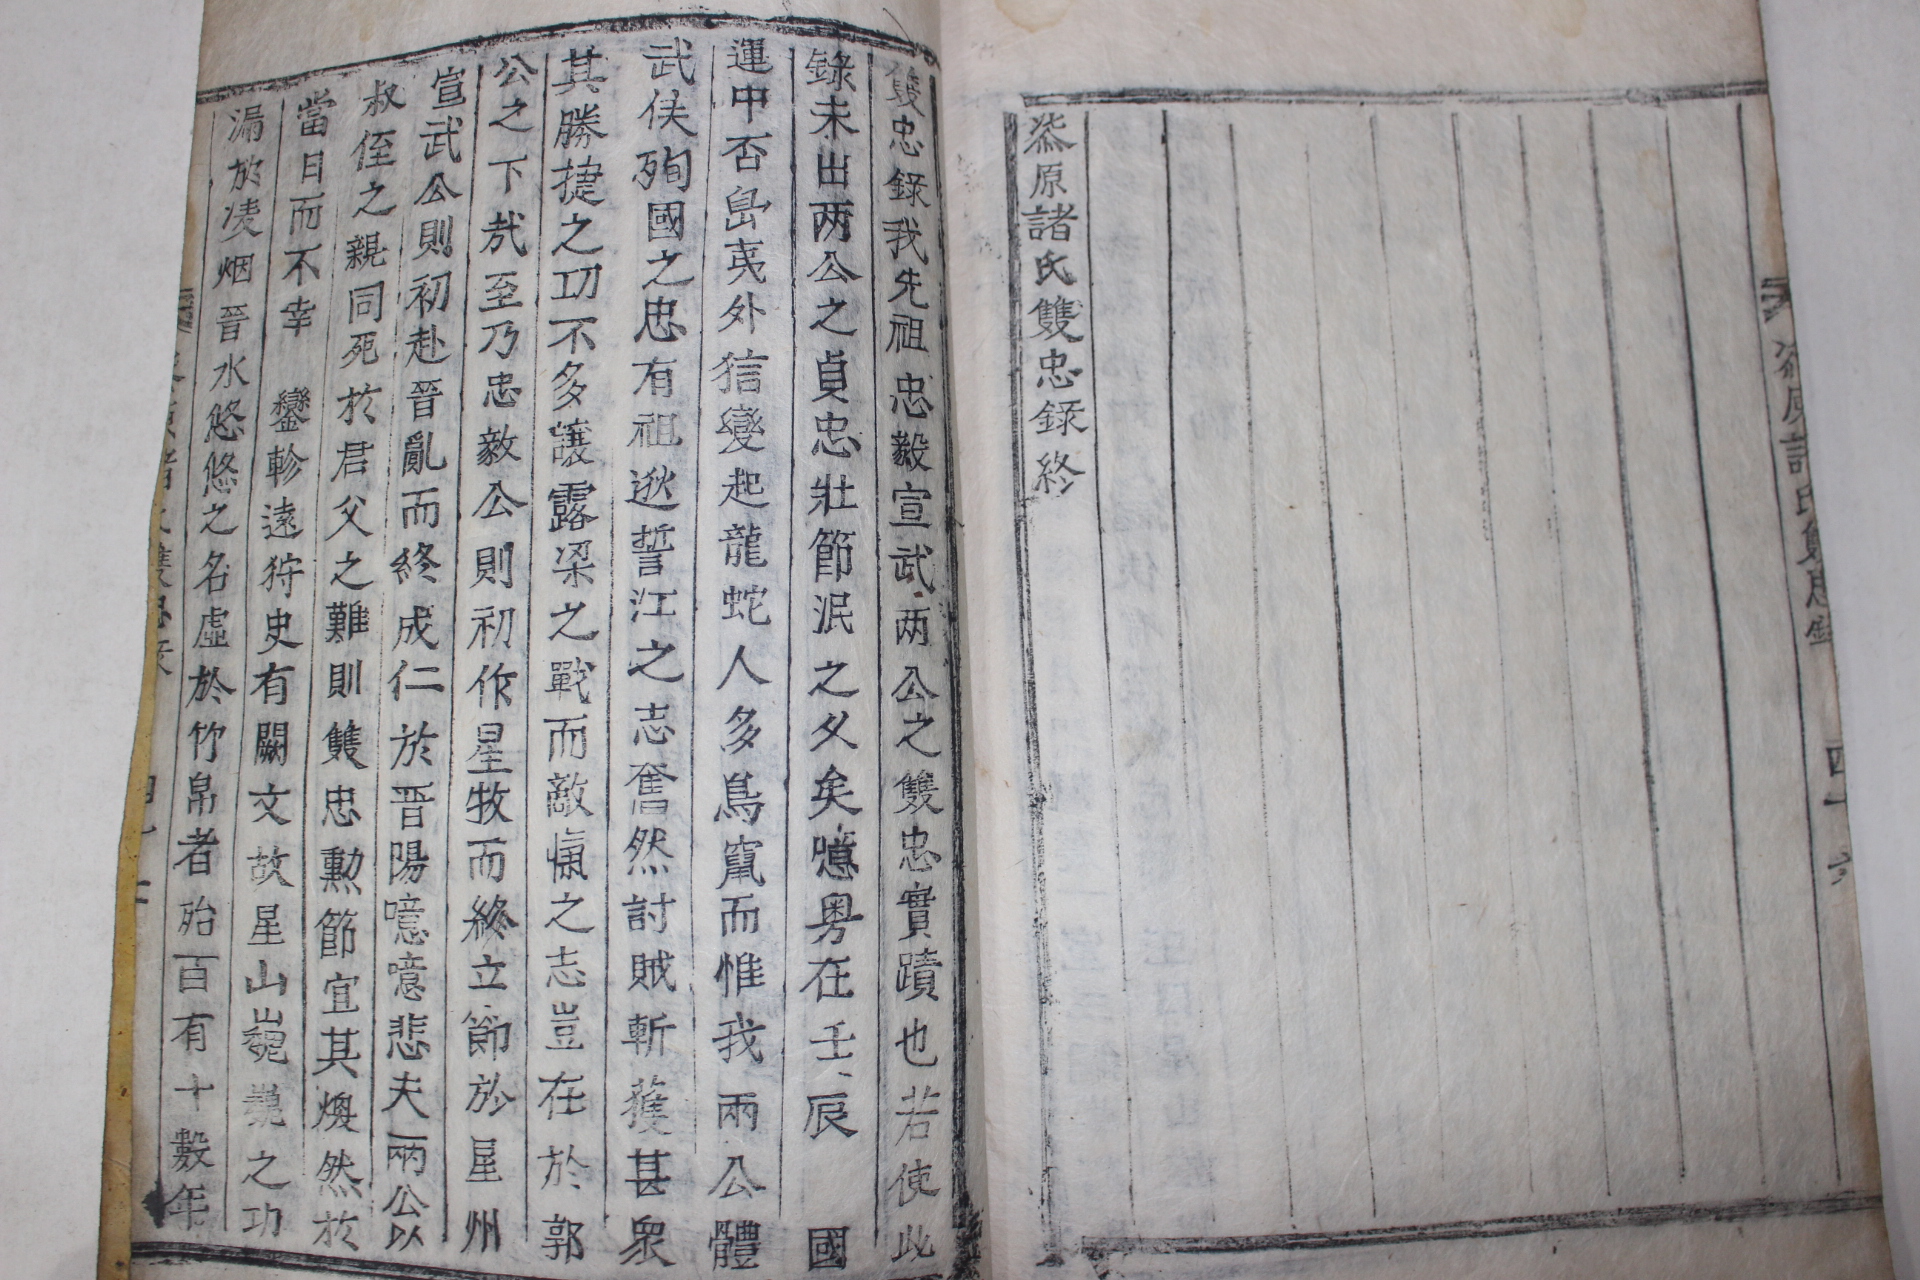 漆原諸氏雙忠錄終
雙忠錄我先祖忠毅宣武兩公之雙忠實蹟也若使此
錄未出两公之貞忠壯節泯之久矣噫粤在壬辰國
運中否島夷外信變起龍蛇人多鳥竄而惟我兩公體
武侯殉國之忠有祖逖誓江之志奮然討賊斬獲甚衆
其勝捷之功不多讓露梁之戰而敵愾之志豈在於郭
公之下哉至乃忠毅公則初作星牧而終立節於星州
宣武公則初赴晉亂而終成仁於晋陽噫噫悲夫兩公以
叔侄之親同死於君父之難則雙忠勲節宜其煥然於
當日而不幸鑾軫遠狩史有闕文故星山巍巍之功
漏於凌烟晉水悠悠之名虛於竹帛者殆百有十數年